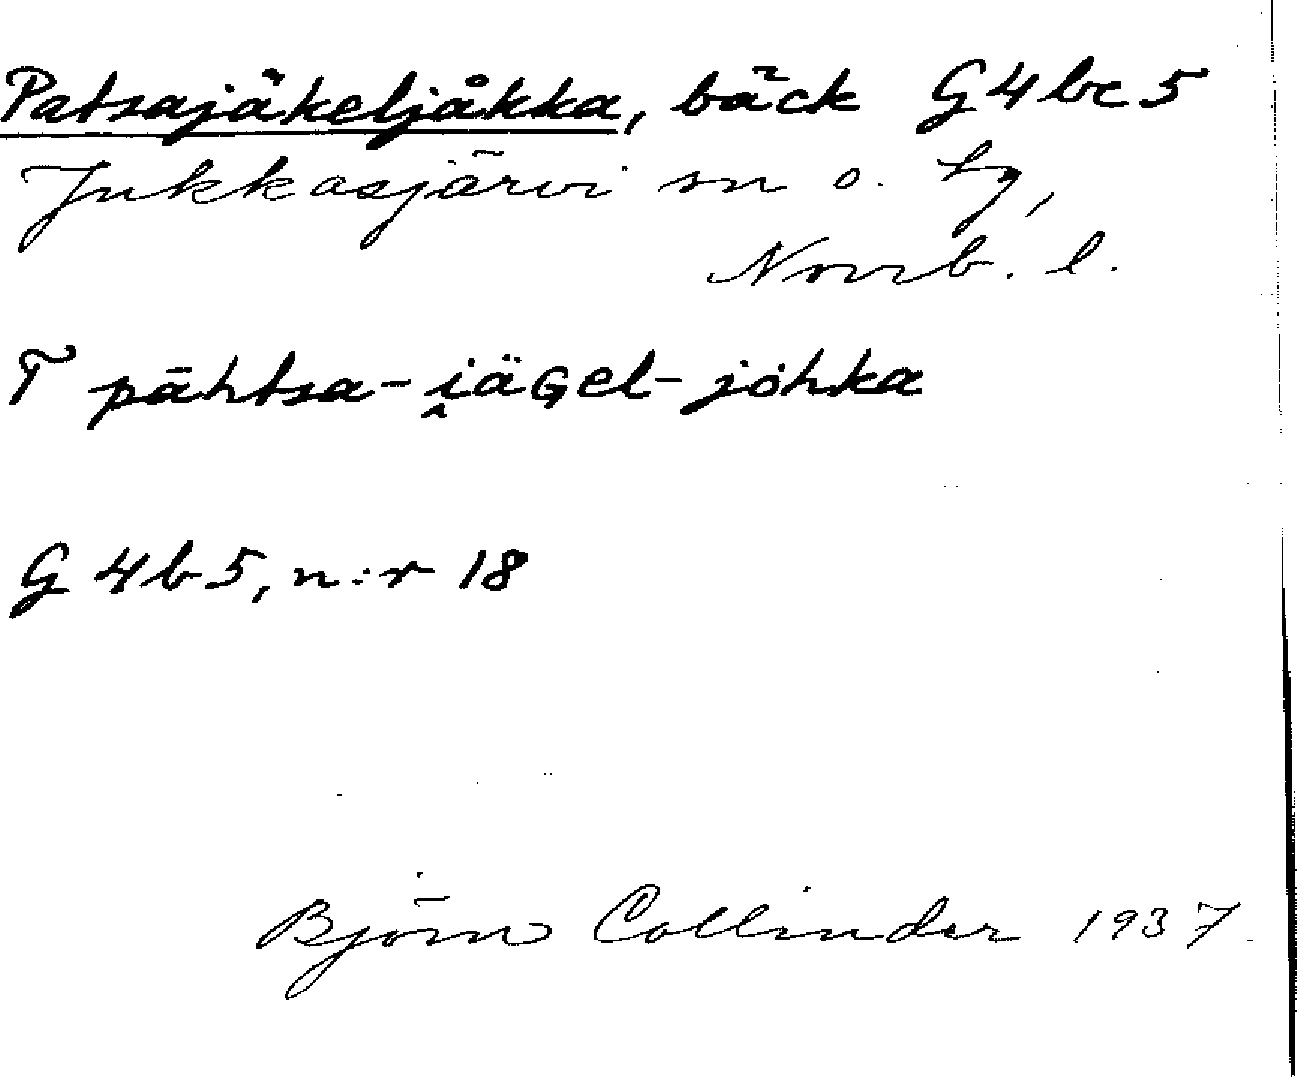 Patsajäkeljåkka, bäck G4bc5
Jukkasjärvi sn o. tg,
Norrb. l.
T pāhtsa-i̭äGel-jòhka
G 4b5, n:r 18
Björn Collinder 1937